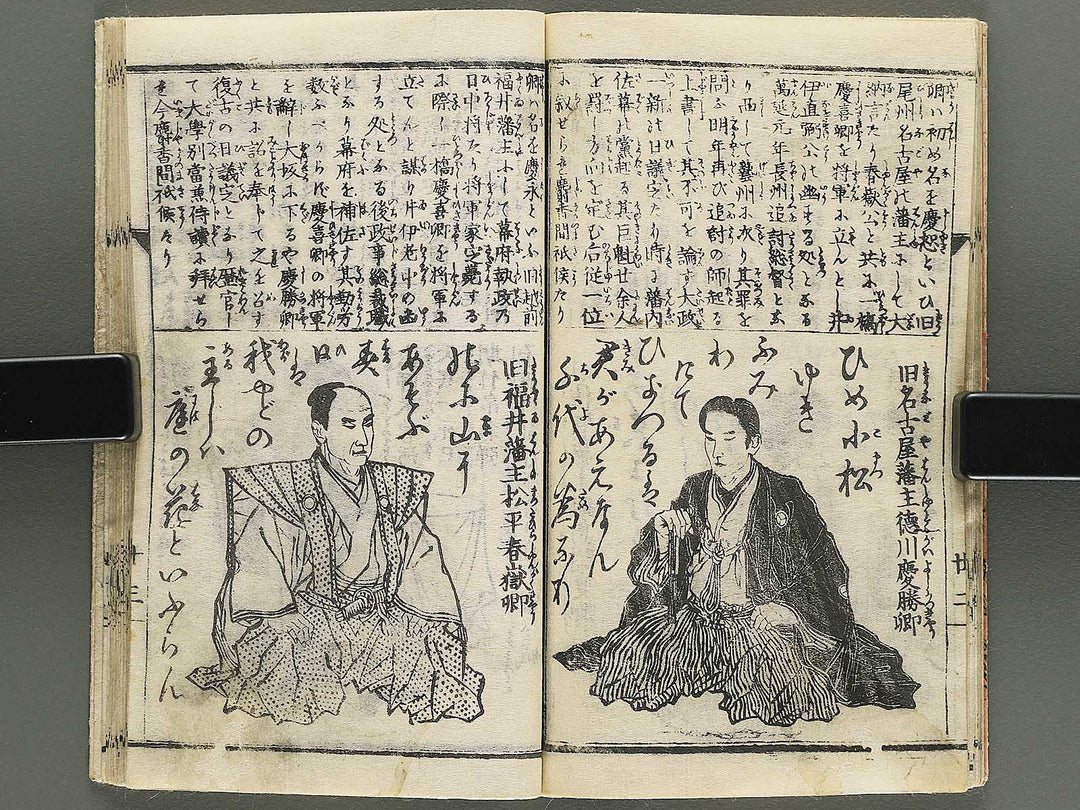 卿ハ初め名を慶恕といひ旧
尾州名古屋の藩主にして大
納言たり春嶽公と共に一橋
慶喜卿を将軍に立んとし井
伊直弼公の幽する処となる
萬延元年長州追討総督と云
り西して藝州に次り其罪を
問ふ明年再び追討の師起る
上書して其不可を論す大政
一新の日議定たり時に藩内
佐幕の黨起る其巨魁廿余人
を罰し方向を定む后従一位
に叙せられ麝香間祗候たり
旧名古屋藩主徳川慶勝卿
ひめ小松
ゆき
ふみ
わ
けて
ひきつるは
君があえなん
千代の為なり
廿二
卿ハ名を慶永といふ旧越前
福井藩主にして幕府執政乃
日中将たり将軍家薨する
に際し一橋慶喜卿を将軍に
立てんと謀り井伊老中の幽
する処となる後政事総裁職
となり幕府を補佐す其勤労
数ふべからず慶喜卿の将軍
を辭し大坂に下るや慶勝卿
と共に詔を奉して之を召す
復古の日議定となり歴官し
て大學別當兼侍讀に拜せら
る今麝香間祗候たり
旧福井藩主松平春嶽卿
山
あそぶ
我やどの
主しハ
庭の花といふらん
廿三